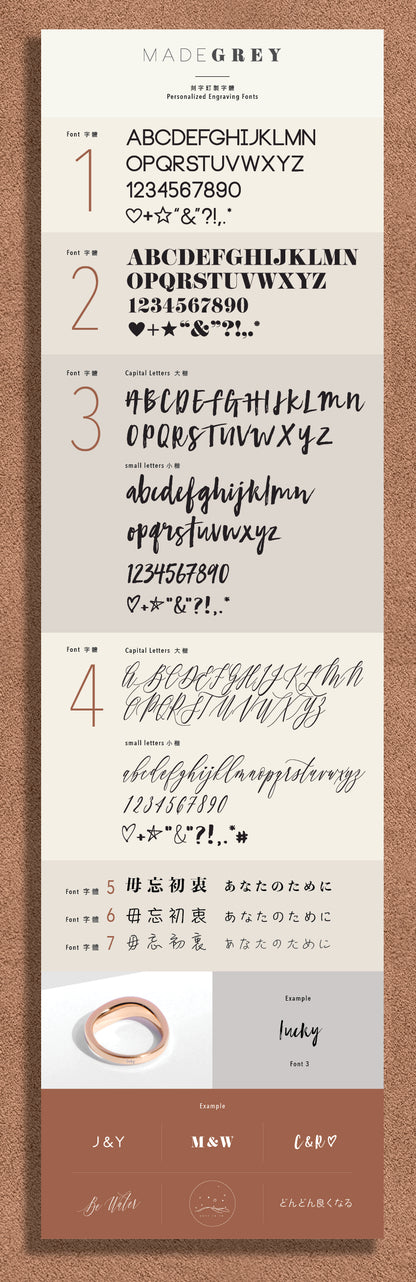 MADEGREY
刻字訂製字體
Personalized Engraving Fonts
Font 字體
1
ABCDEFGHIJKLMN
OPQRSTUVWXYZ
1234567890
♡+☆“&”?!,.*
Font 字體
2
ABCDEFGHIJKLMN
OPQRSTUVWXYZ
1234567890
♥+★“&”?!,.*
Font 字體
3
Capital Letters 大楷
ABCDEFGHIJKLMN
OPQRSTUVWXYZ
small letters 小楷
abcdefghijklmn
opqrstuvwxyz
1234567890
♡+☆“&”?!,.*
Font 字體
4
Capital Letters 大楷
ABCDEFGHIJKLMN
OPQRSTUVWXYZ
small letters 小楷
abcdefghijklmnopqrstuvwxyz
1234567890
♡+☆“&”?!,.*#
Font 字體 5 毋忘初衷 あなたのために
Font 字體 6 毋忘初衷 あなたのために
Font 字體 7 毋忘初衷 あなたのために
lucky
Example
lucky
Font 3
Example
J&Y M&W C&R♡
Be Water どんどん良くなる